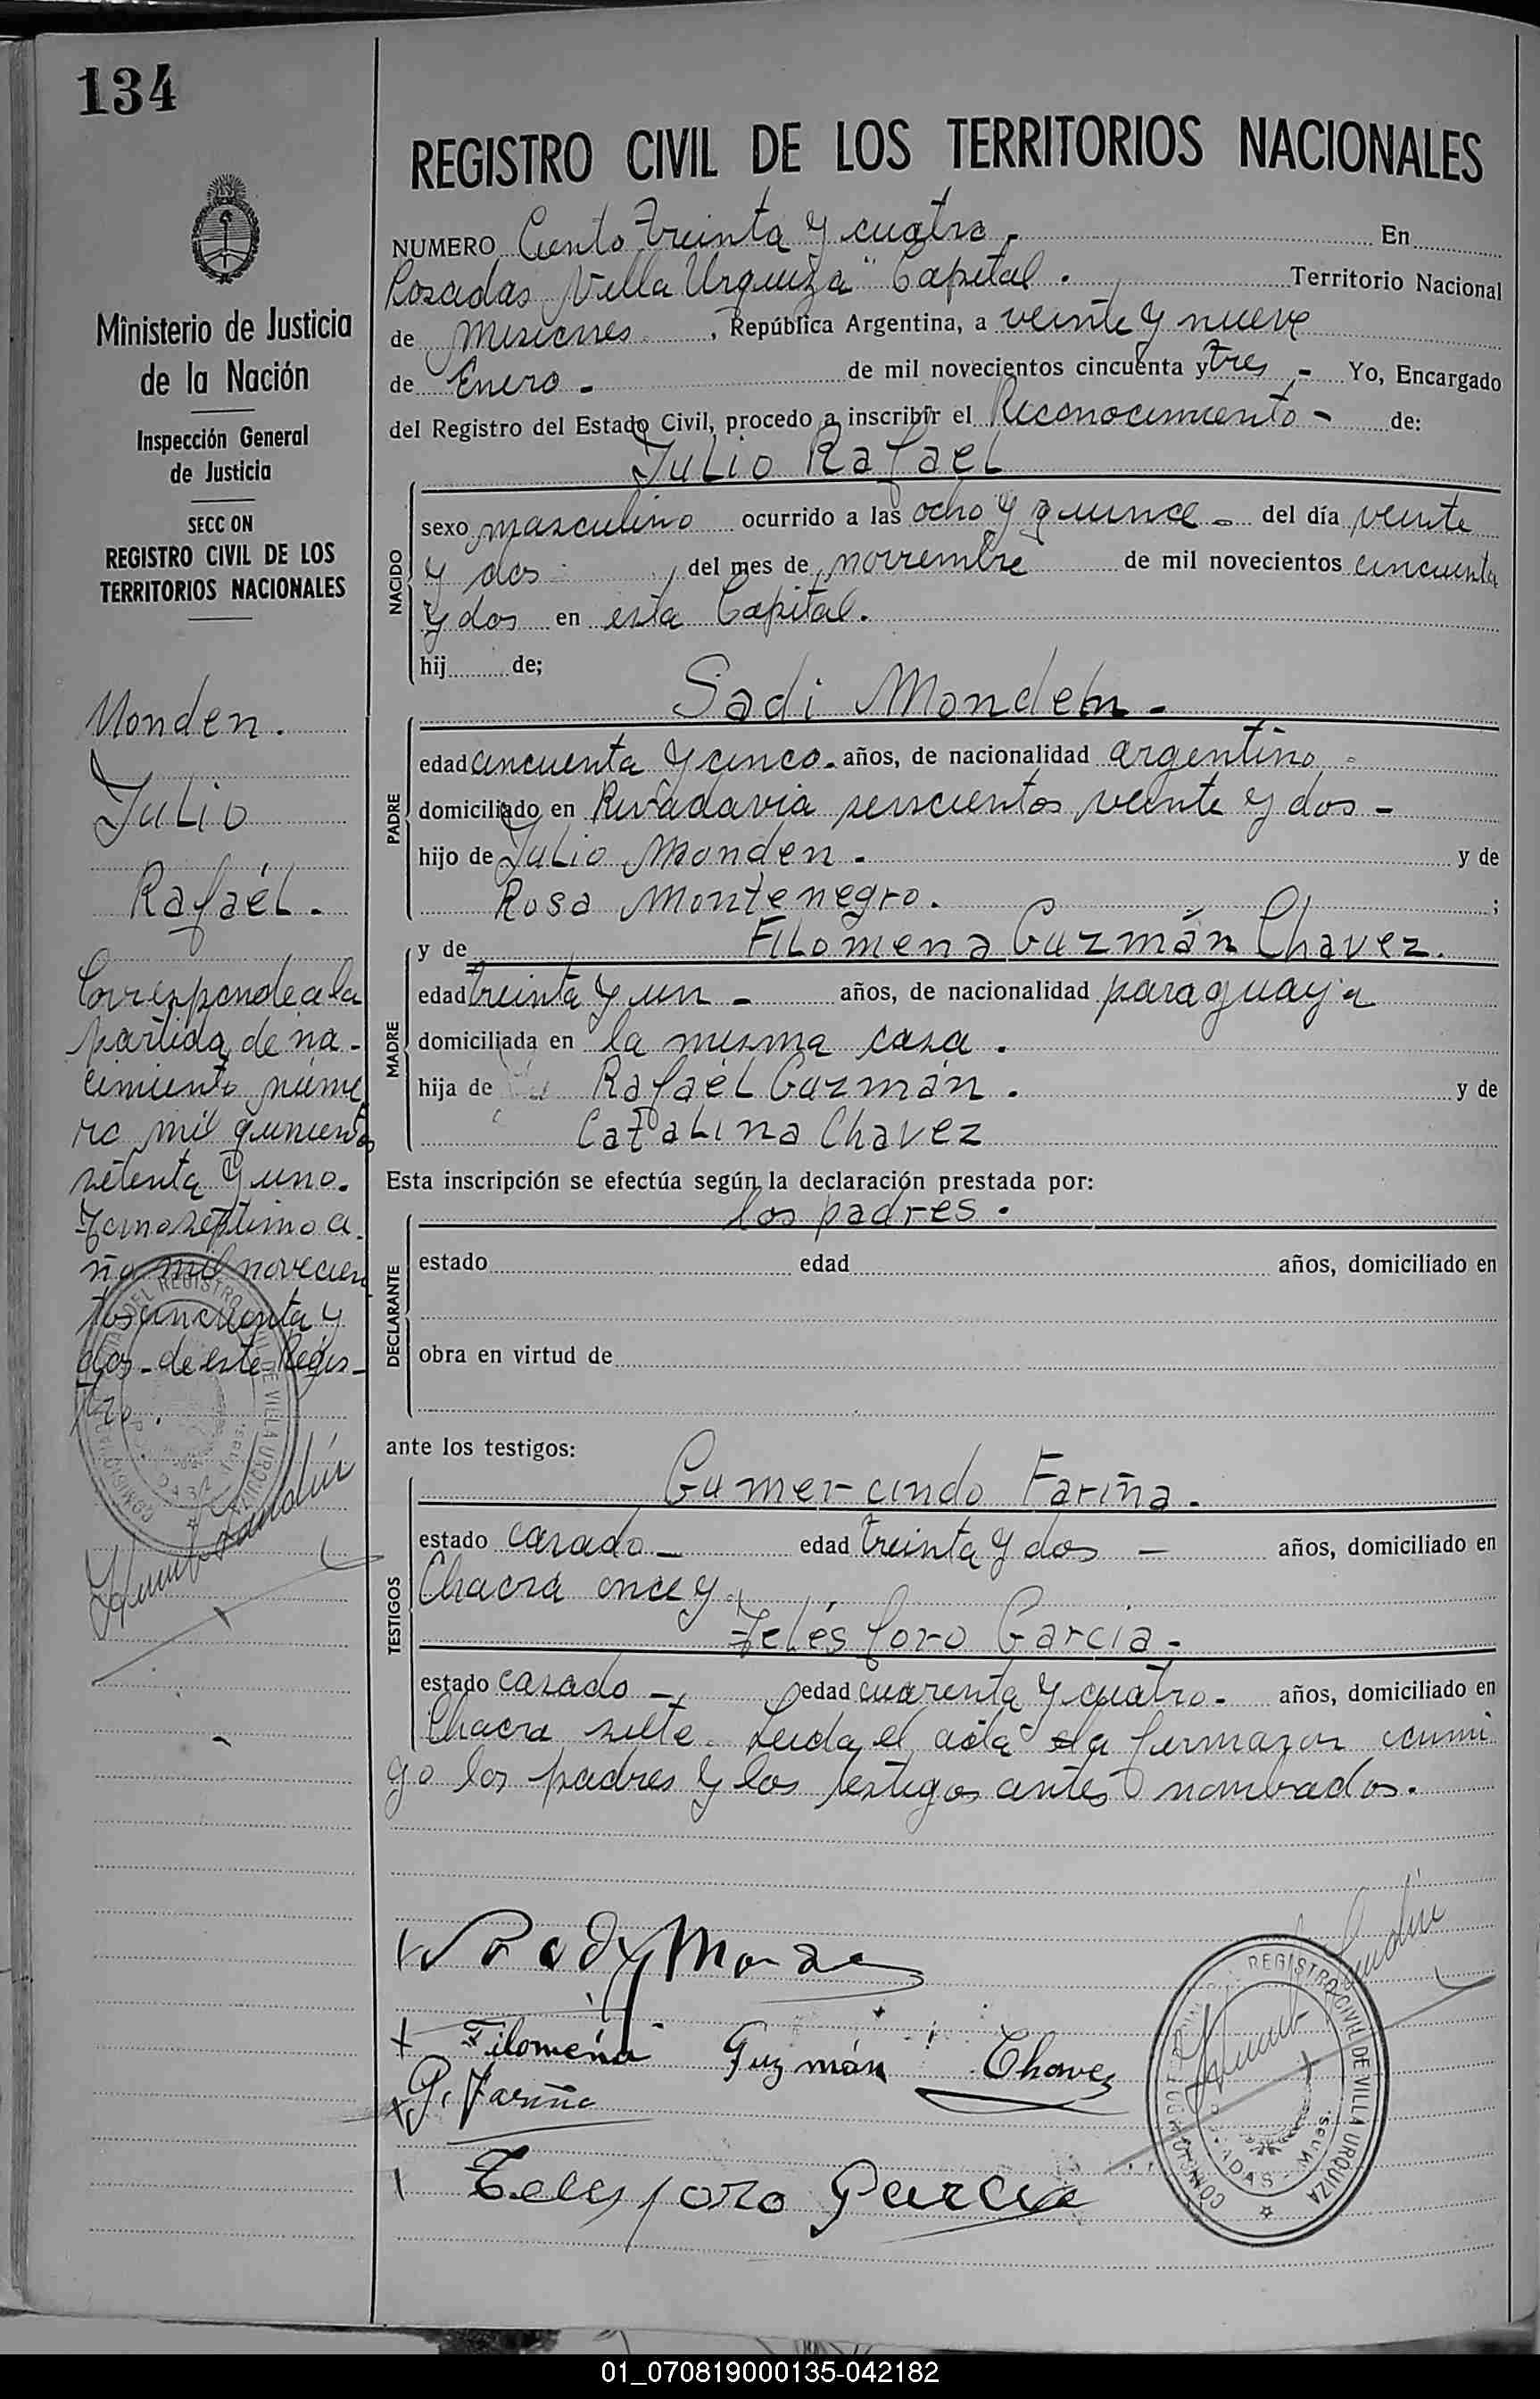 134
REGISTRO CIVIL DE LOS TERRITORIOS NACIONALES
Ministerio de Justicia
de la Nación
Inspección General
de Justicia
SECC ON
REGISTRO CIVIL DE LOS
TERRITORIOS NACIONALES
Monden.
Julio
Rafaél.
Corresponde a la
partida de na-
cimiento núme
ro mil quinientos
setenta y uno.
Tomo septimo a
ño mil novecien
tos cincuenta y
dos - de este Regis-
tro.
NUMERO Ciento treinta y cuatro.- En
Posadas "Villa Urquiza" Capital. Territorio Nacional
de Misiones, República Argentina, a veinte y nueve
de Enero - de mil novecientos cincuenta y tres,- Yo, Encargado
del Registro del Estado Civil, procedo a inscribir el Reconocimiento - de:
Julio Rafael
NACIDO
sexo masculino ocurrido a las ocho y quince - del día veinte
y dos, del mes de noviembre de mil novecientos cincuenta
y dos en esta Capital.
hij de;
Sadi Monden.-
PADRE
edad cincuenta y cinco. años, de nacionalidad argentino
domiciliado en Rivadavia seiscientos veinte y dos -
hijo de Julio Monden. y de
Rosa Montenegro. ;
y de Filomena Guzmán Chavez.
MADRE
edad treinta y un - años, de nacionalidad paraguaya
domiciliada en la misma casa.
hija de Rafaél Guzmán. y de
Catalina Chavez
Esta inscripción se efectúa según la declaración prestada por:
los padres.
DECLARANTE
estado edad años, domiciliado en
obra en virtud de
ante los testigos:
Gumercindo Fariña.
TESTIGOS
estado casado - edad treinta y dos - años, domiciliado en
Chacra once y
Telésforo Garcia-
estado casado - edad cuarenta y cuatro- años, domiciliado en
Chacra siete. Leida el acta la firmaron conmi
go los padres y los testigos antes nombrados.
Filomena Guzmán Chavez
G. Fariña
Telesforo Garcia
REGISTRO CIVIL DE VILLA URQUIZA
01_070819000135-042182